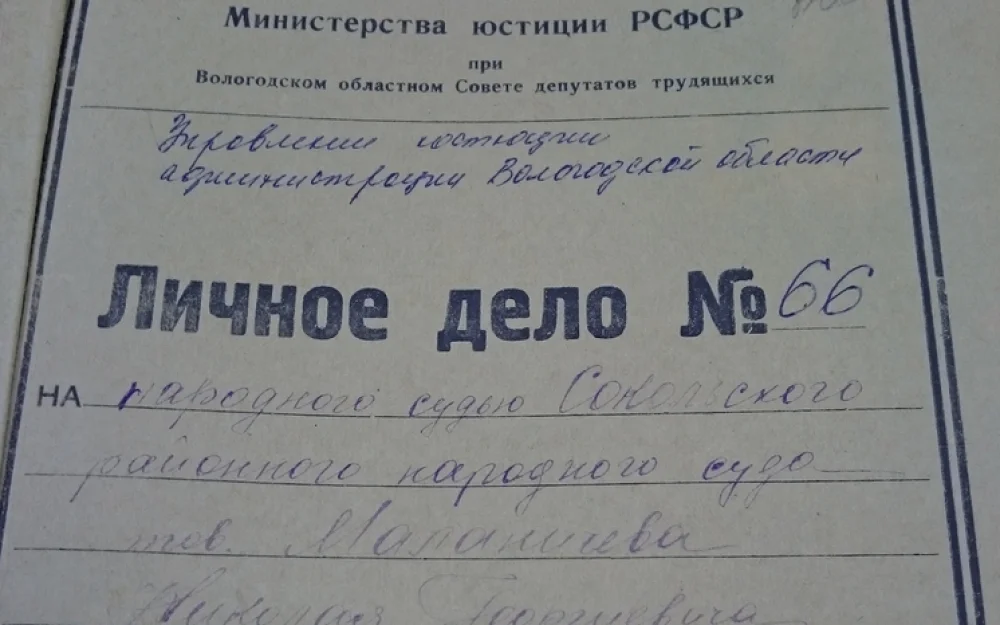 Министерства юстиции РСФСР
при
Вологодском областном Совете депутатов трудящихся
Управление юстиции
администрации Вологодской области
Личное дело № 66
НА народного судью Сокольского
районного народного суда
тов. Маланичева
Николая Георгиевича